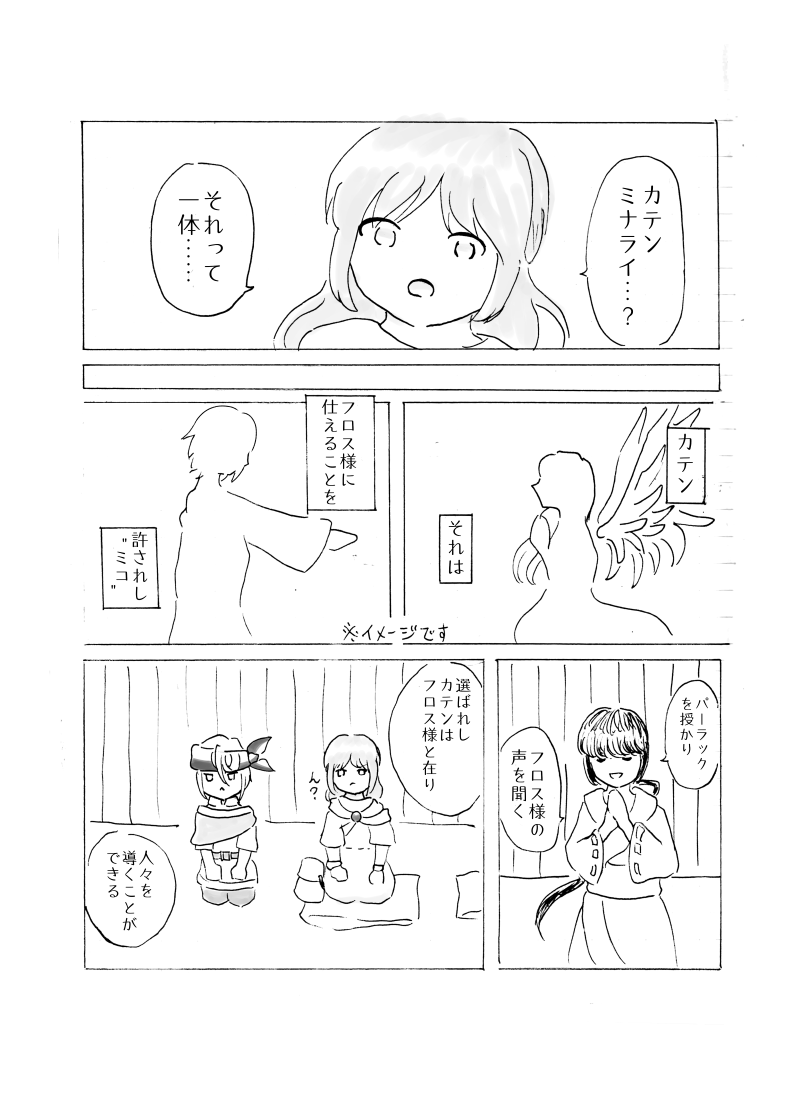 カテン
ミナライ…?
それって
一体……
カテン
それは
フロス様に
仕えることを
許されし
"ミコ"
※イメージです
パーラック
を授かり
フロス様の
声を聞く
選ばれし
カテンは
フロス様と在り
ん?
人々を
導くことが
できる